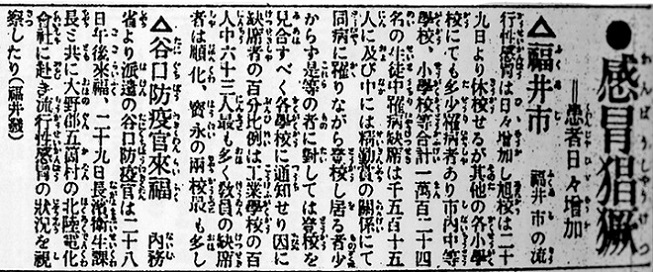 ●感冒猖獗
＝患者日々増加
△福井市　福井市の流
行性感冒は日々增加し旭校は二十
九日より休校せるが其他の各小學
校にても多少罹病者あり市内中等
學校、小學校等合計一萬百二十四
名の生徒中罹病缺席は千五百十五
人に及び中には精勤賞の關係にて
同病に罹りながら登校し居る者少
からず是等の者に對しては登校を
見合すべく各學校に通知せり因に
缺席者の百分比例は工業學校の百
人中六十三人最も多く敎員の缺席
者は順化、寶永の兩校最も多し
△谷口防疫官來福　内務
省より派遣の谷口防疫官は二十八
日午後來福、二十九日長濱衞生課
長と共に大野郡五箇村の北陸電化
會社に赴き流行性感冒の狀況を視
察したり（福井發）